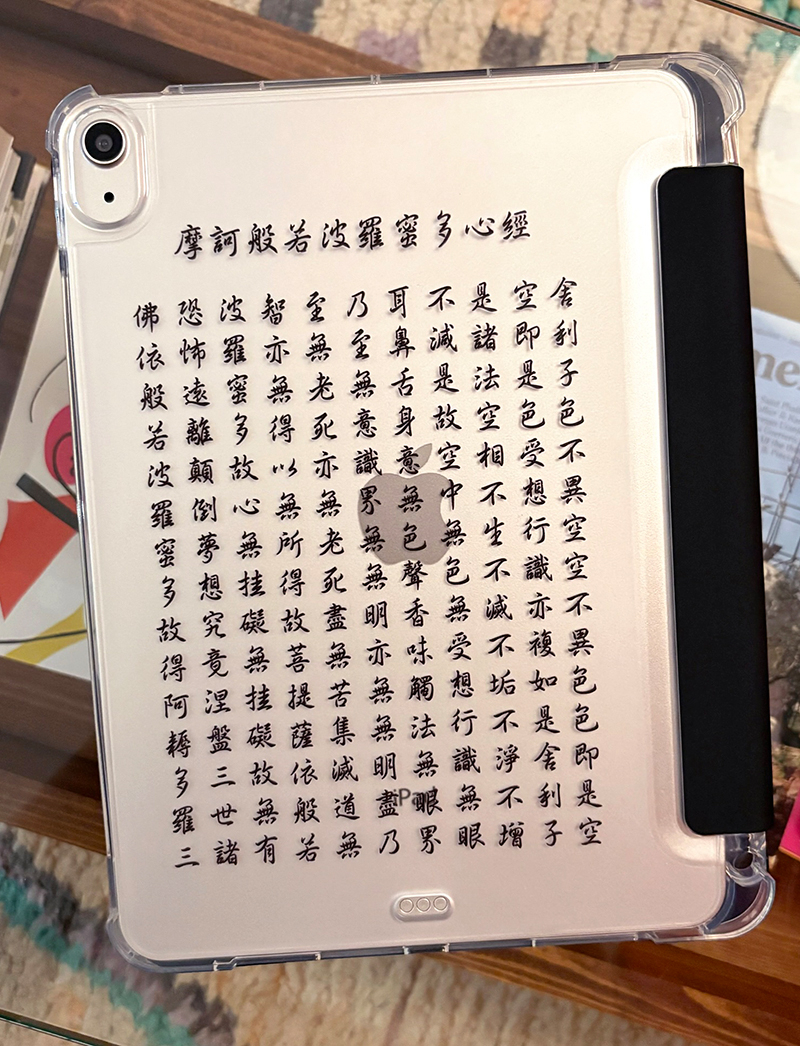 摩訶般若波羅蜜多心經
舍利子色不異空空不異色色即是空
空即是色受想行識亦複如是舍利子
是諸法空相不生不滅不垢不淨不增
不減是故空中無色無受想行識無眼
耳鼻舌身意無色聲香味觸法無眼界
乃至無意識界無無明亦無無明盡乃
至無老死亦無老死盡無苦集滅道無
智亦無得以無所得故菩提薩依般若
波羅蜜多故心無挂礙無挂礙故無有
恐怖遠離顛倒夢想究竟涅盤三世諸
佛依般若波羅蜜多故得阿耨多羅三